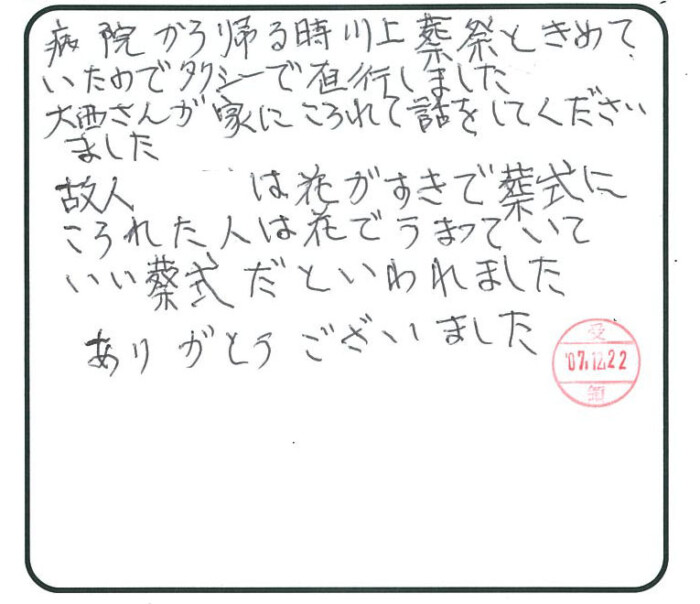 病院から帰る時川上葬祭ときめて
いたのでタクシーで直行しました
大西さんが家にこられて話をしてください
ました
故人 は花がすきで葬式に
こられた人は花でうまっていて
いい葬式だといわれました
ありがとうございました
受
'07.12.22
領